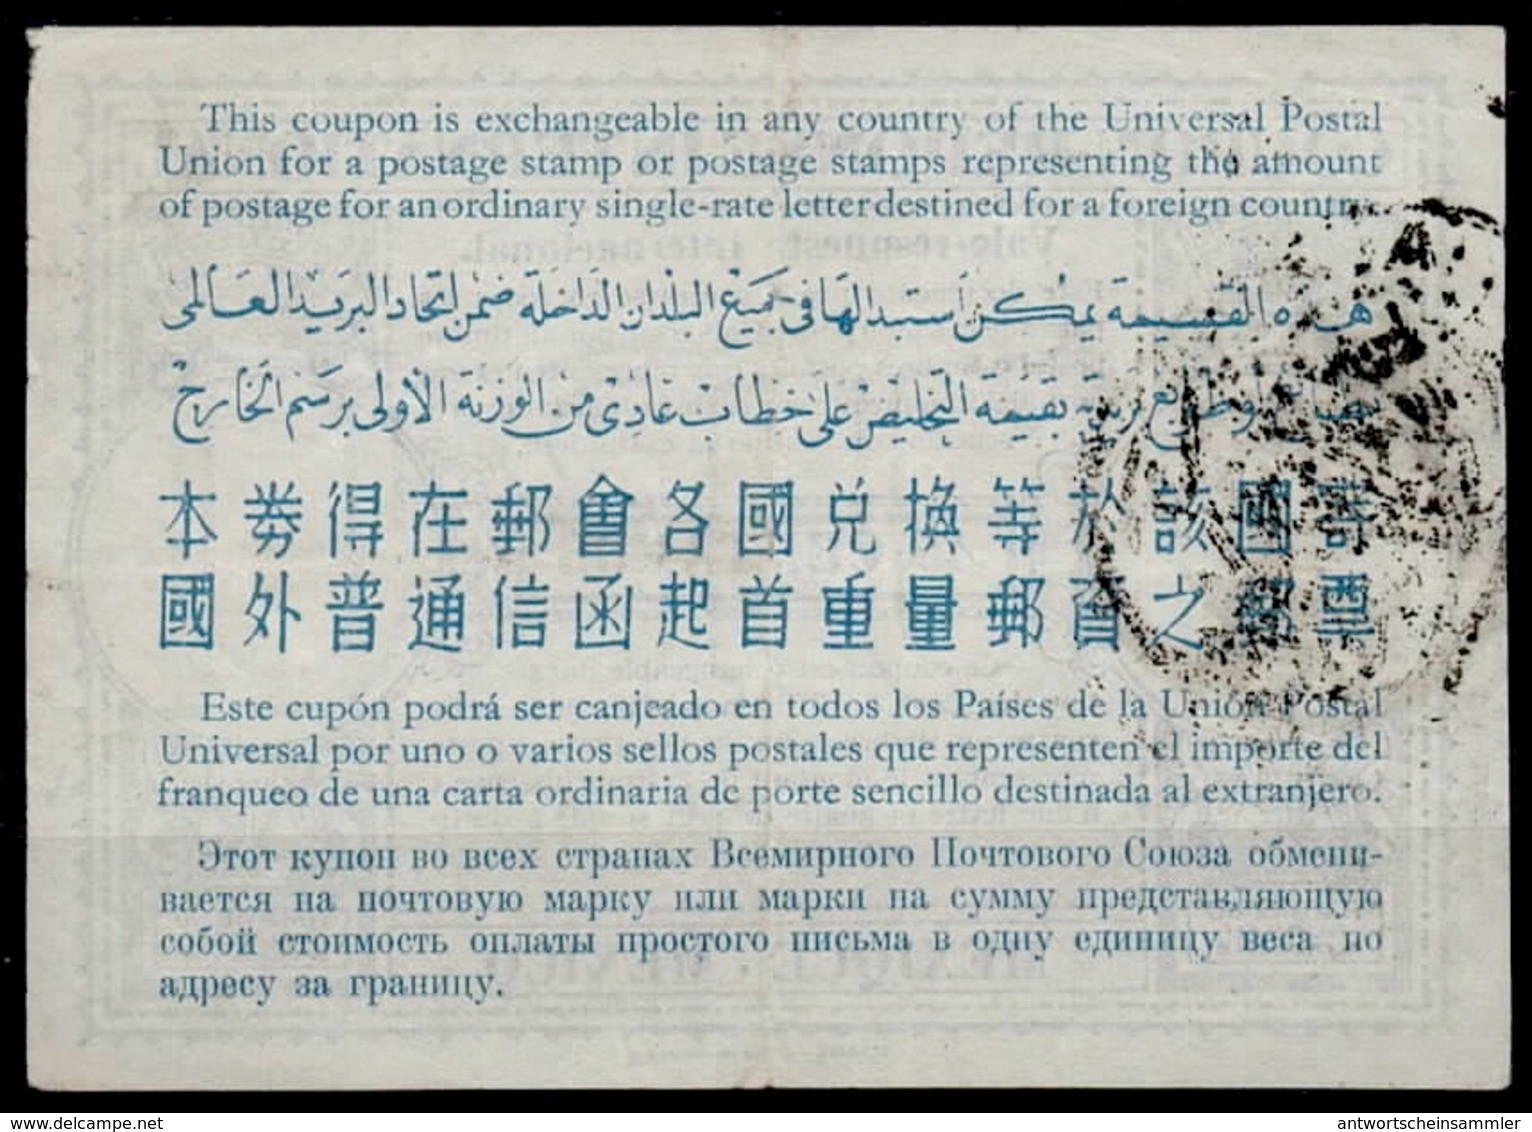 This coupon is exchangeable in any country of the Universal Postal
Union for a postage stamp or postage stamps representing the amount
of postage for an ordinary single-rate letter destined for a foreign country.
هذه القسيمة يمكن استبدالها في جميع البلدان الداخلة ضمن اتحاد البريد العالمى
طوابع بريدية بقيمة التخليص على خطاب عادى من الوزنة الأولى برسم الخارج
本券得在郵會各國兌換等於該國寄
國外普通信函起首重量郵資之郵票
Este cupón podrá ser canjeado en todos los Países de la Unión Postal
Universal por uno o varios sellos postales que representen el importe del
franqueo de una carta ordinaria de porte sencillo destinada al extranjero.
Этот купон во всех странах Всемирного Почтового Союза обмени-
вается на почтовую марку или марки на сумму представляющую
собой стоимость оплаты простого письма в одну единицу веса по
адресу за границу.
delcampe.net
antwortscheinsammler